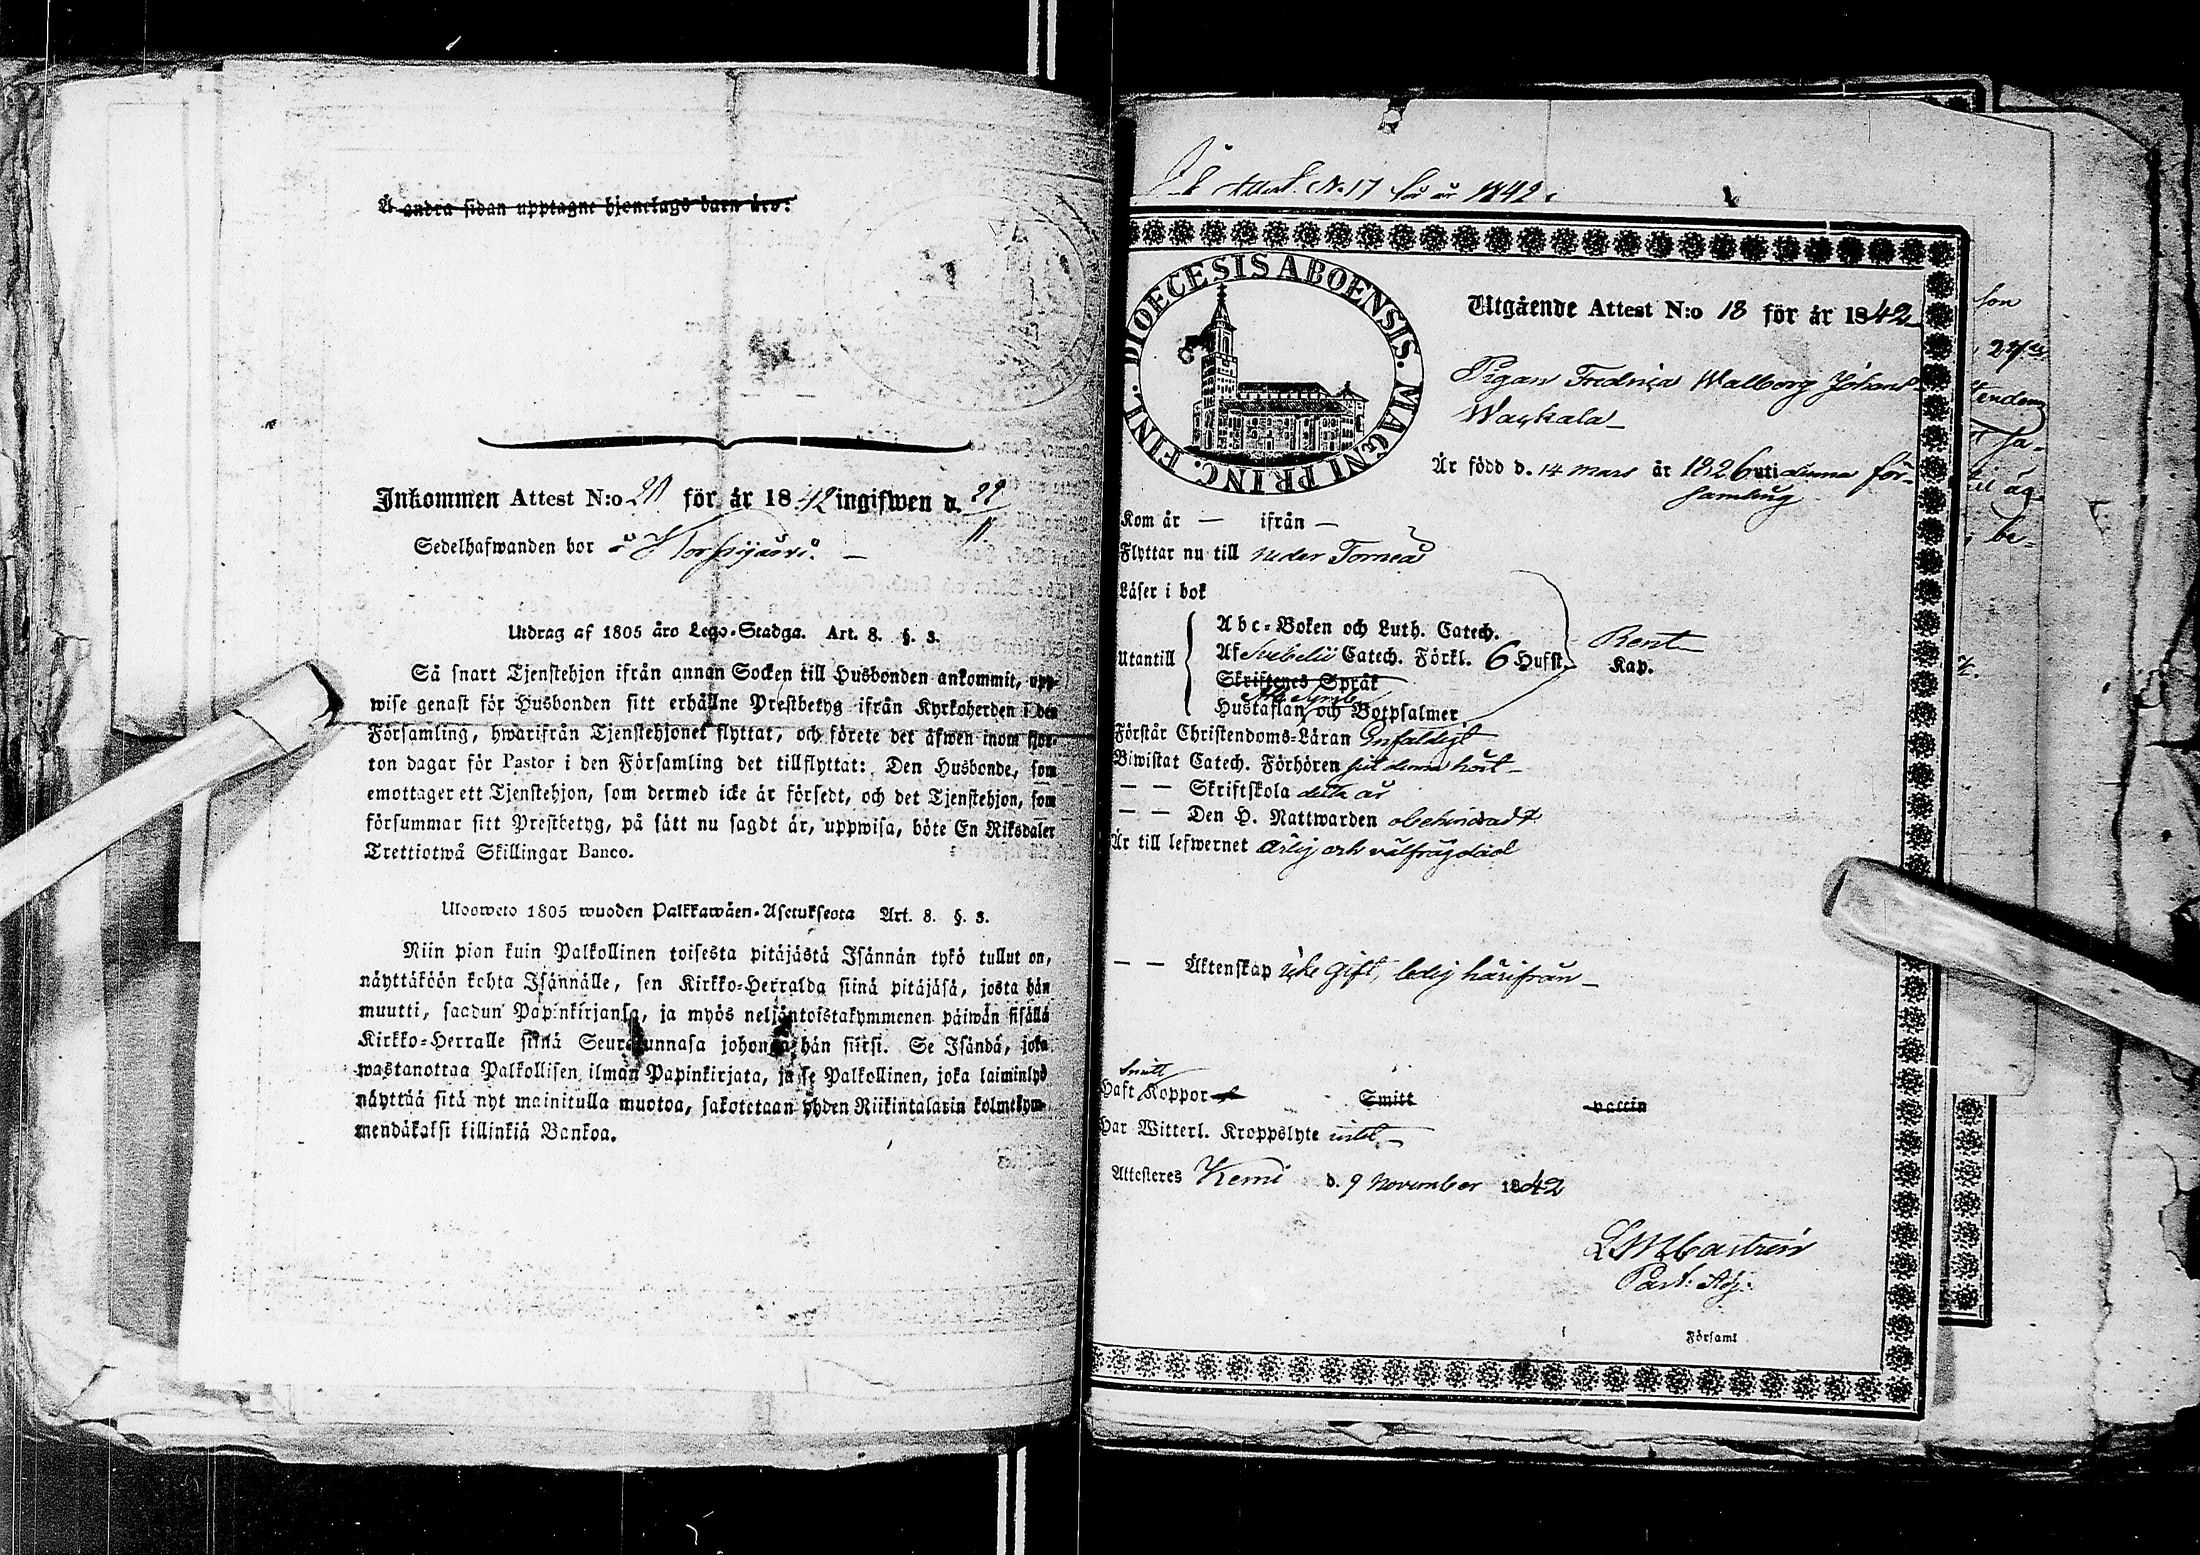 Å andra sidan upptagne hjonelags barn äro:
Inkommen Attest N:o 20 för år 1842 ingifwen d. 29/11.
Sedelhafwanden bor i Korpijärvi. —
Utdrag af 1805 års Lego-Stadga. Art. 8. §. 3.
Så snart Tjenstehjon ifrån annan Socken till Husbonden ankommit, upp-
wise genast för Husbonden sitt erhållne Prestbetyg ifrån Kyrkoherden i den
Församling, hwarifrån Tjenstehjonet flyttat, och förete det äfwen inom fjor-
ton dagar för Pastor i den Församling det tillflyttat: Den Husbonde, som
emottager ett Tjenstehjon, som dermed icke är försedt, och det Tjenstehjon, som
försummar sitt Prestbetyg, på sätt nu sagdt är, uppwisa, böte En Riksdaler
Trettiotwå Skillingar Banco.
Ulosweto 1805 wuoden Palkkawäen-Asetuksesta Art. 8. §. 3.
Niin pian kuin Palkollinen toisesta pitäjästä Isännän tykö tullut on,
näyttäköön kohta Isännälle, sen Kirkko-Herralda siinä pitäjäsä, josta hän
muutti, saadun Papinkirjansa, ja myös neljäntoistakymmenen päiwän sisällä
Kirkko-Herralle siinä Seurakunnasa johonga hän siirsi. Se Isändä, joka
wastanottaa Palkollisen ilman Papinkirjata, ja se Palkollinen, joka laiminlyö
näyttää sitä nyt mainitulla muotoa, sakotetaan yhden Riikintalarin kolmekym-
mendäkaksi killinkiä Bankoa.
Attest. No 17 för år 1842.
DIOECESIS ABOENSIS. MAGNI PRINC. FINL.
Utgående Attest N:o 18 för år 1842
Pigan Fredrica Walborg Johansd
Waykala
Är född d. 14 mars år 1826 uti denna för-
samling
Kom år — ifrån —
Flyttar nu till neder Torneå
Läser i bok
Abc-Boken och Luth. Catech.
Utantill Af Svebelii Catech. Förkl. 6 Hufst. Rent
Kap.
Skriftenes Språk
Hustaflan, och Botpsalmer
Förstår Christendoms-Läran Enfaldigt
Biwistat Catech. Förhören sist denna höst
— — Skriftskola detta år
— — Den H. Nattwarden obehindradt
Är till lefwernet ärlig och välfrägdad
— — Äktenskap icke gift, ledig härifrån —
Haft Koppor Smitt vaccin
Har Witterl. Kroppslyte intet
Attesteres Kemi d. 9 November 1842
L M Castrén
Past: Adj.
Församl